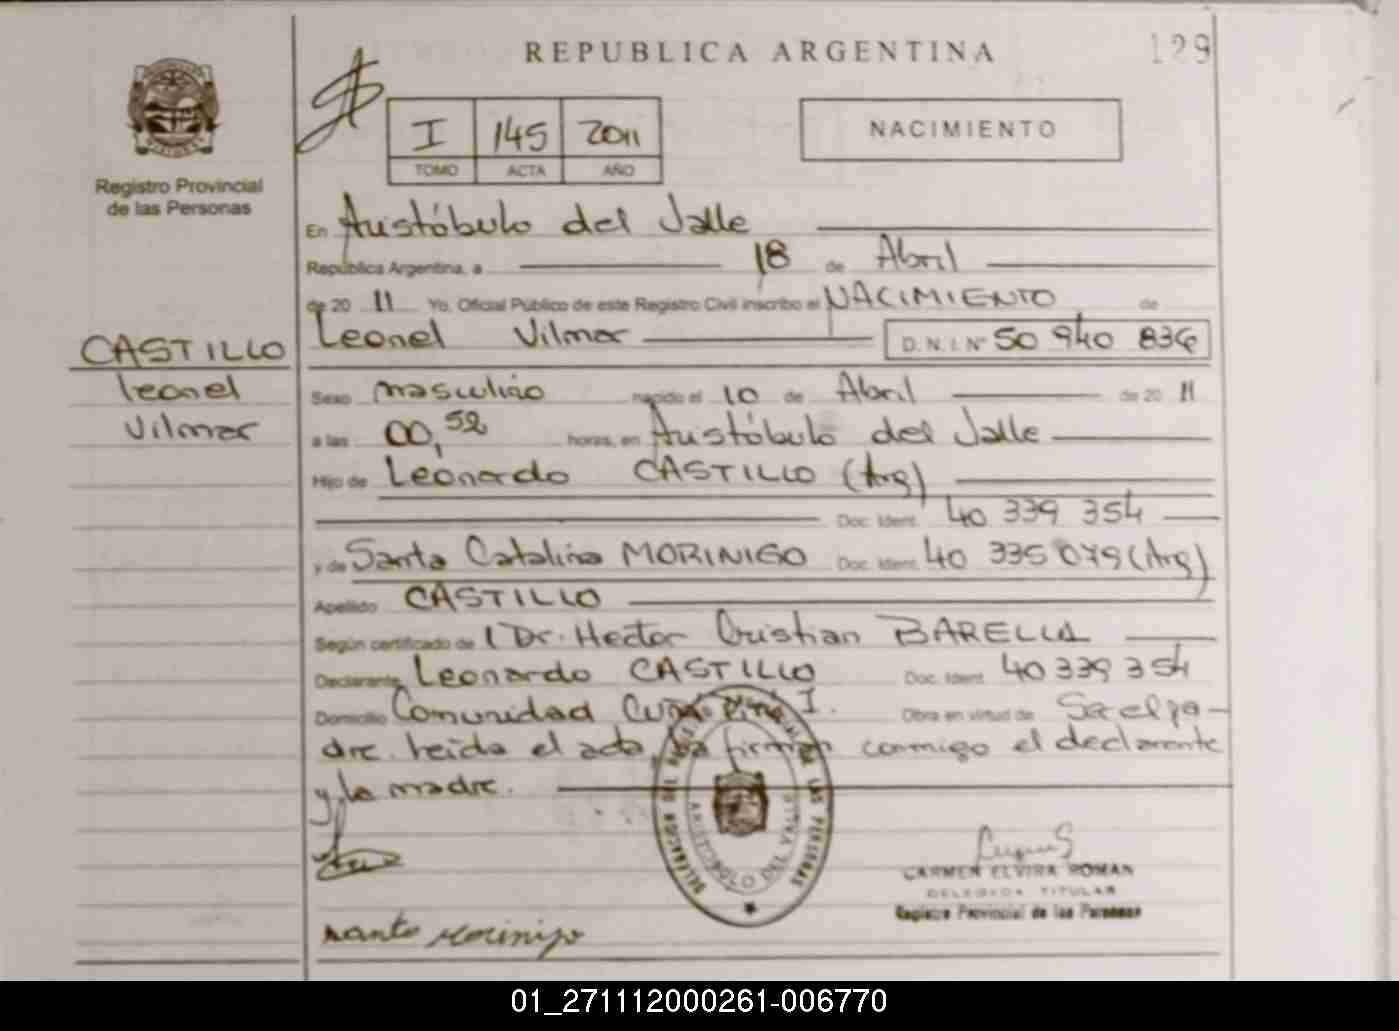 REPUBLICA ARGENTINA
129
Registro Provincial
de las Personas
I 145 2011
TOMO ACTA AÑO
NACIMIENTO
En Aristóbulo del Valle
República Argentina, a 18 de Abril
de 20 11 Yo, Oficial Público de este Registro Civil inscribo el NACIMIENTO de
Leonel Vilmar D.N.I. Nº 50 940 836
CASTILLO
Leonel
Vilmar
Sexo masculino nacido el 10 de Abril de 20 11
a las 00,52 horas, en Aristóbulo del Valle
Hijo de Leonardo CASTILLO (Arg)
Doc. Ident. 40 339 354
y de Santa Catalina MORINIGO Doc. Ident. 40 335 079 (Arg)
Apellido CASTILLO
Según certificado de l Dr. Hector Cristian BARELLA
Declarante Leonardo CASTILLO Doc. Ident. 40 339 354
Domicilio Comunidad Cuña Pirú I. Obra en virtud de Ser el pa-
dre. leída el acta, la firman conmigo el declarante
y la madre.
DELEGACION
DE LAS PERSONAS
ARISTOBULO DEL VALLE
CARMEN ELVIRA ROMAN
DELEGADA TITULAR
Registro Provincial de las Personas
santa morinigo
01_271112000261-006770